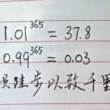 1.01³⁶⁵ = 37.8
0.99³⁶⁵ = 0.03
跬步以致千里